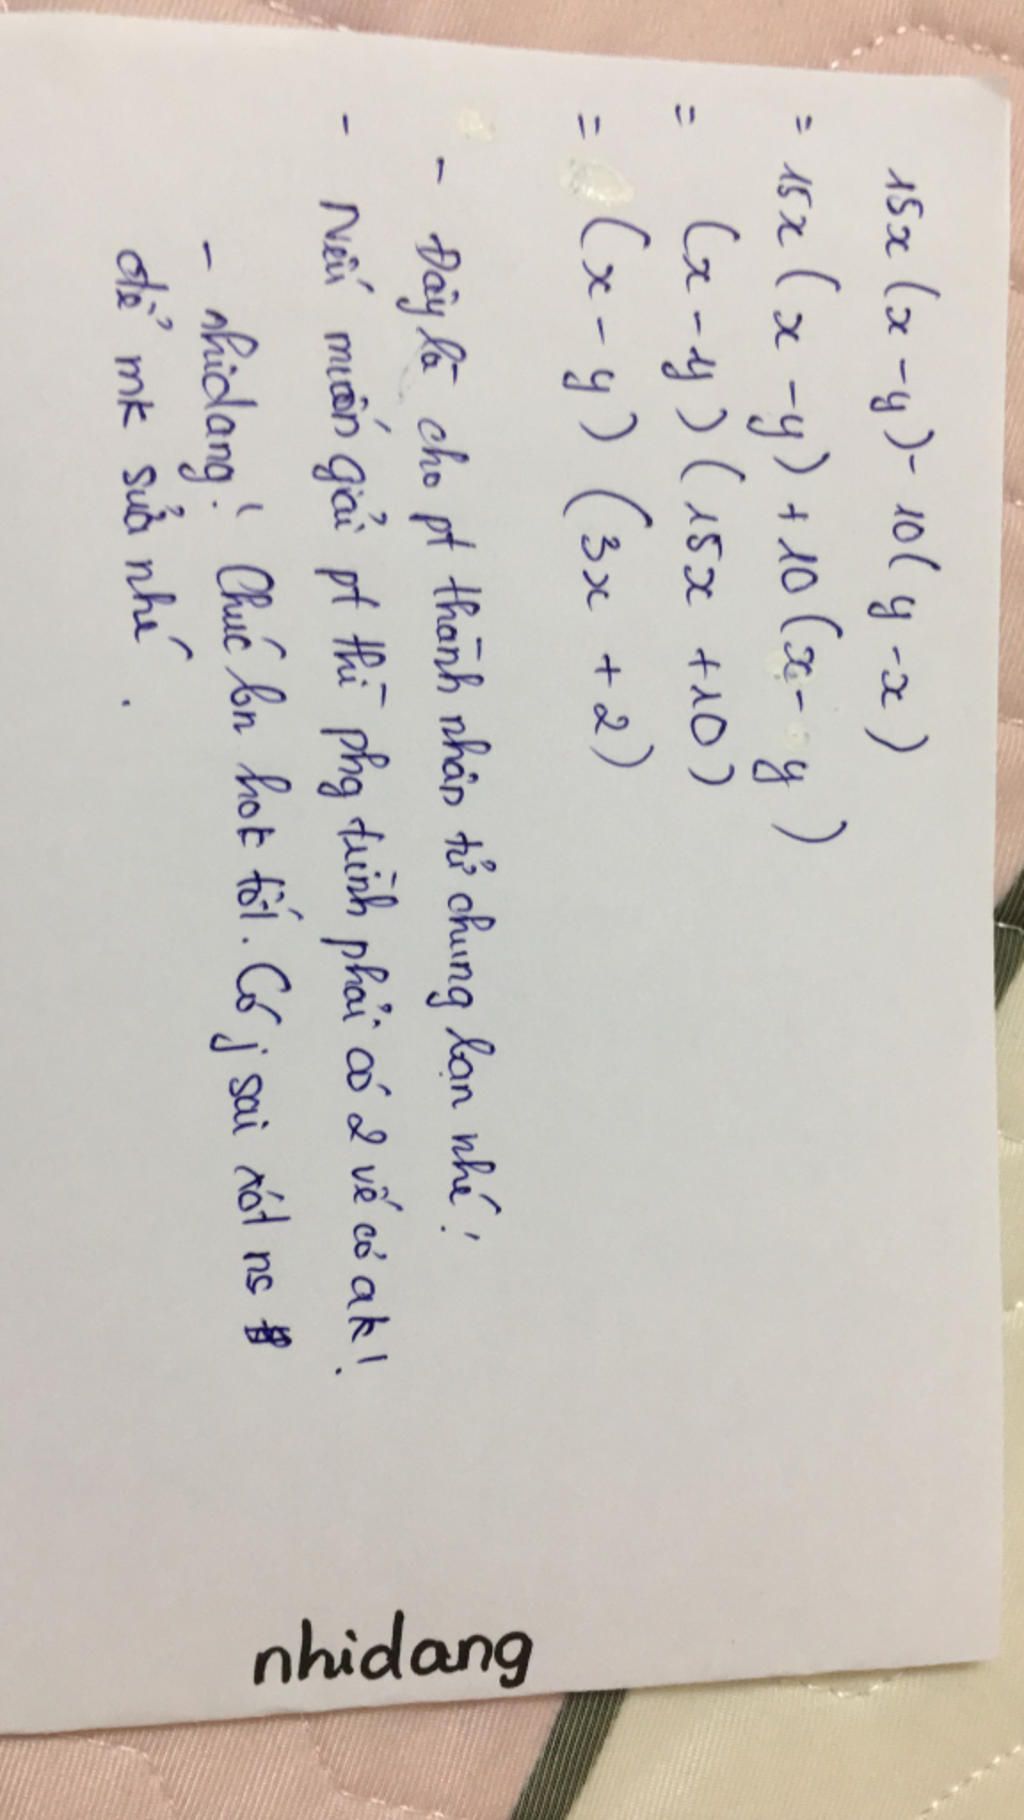 15x(x-y)-10(y-x)
= 15x(x-y)+10(x-y)
= (x-y)(15x+10)
= (x-y)(3x+2)
- Đây là cho pt thành nhân tử chung bạn nhé!
- Nếu muốn giải pt thì phg trình phải có 2 vế cơ ak!
- nhidang! Chúc bn hok tốt. Có j sai xót ns
để mk sửa nhé.
nhidang